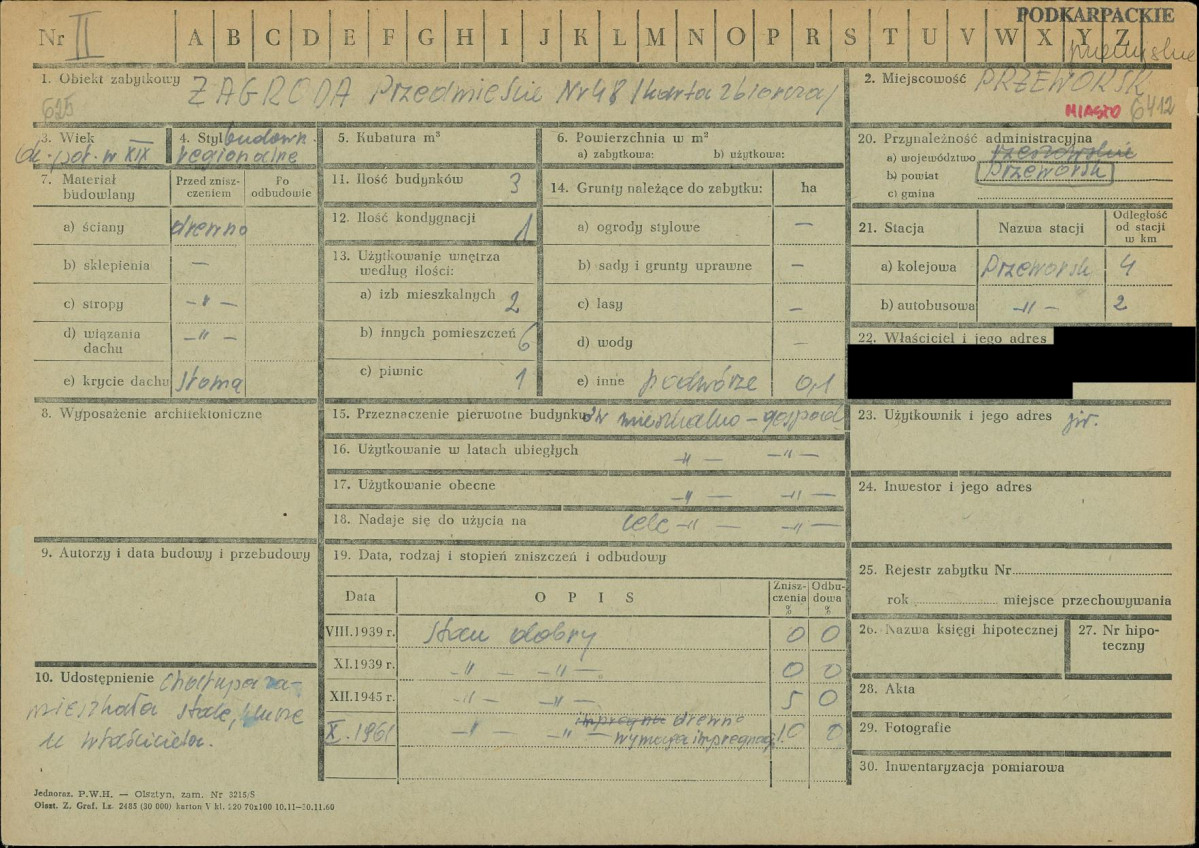 PODKARPACKIE
Nr II A B C D E F G H I J K L M N O P R S T U V W X Y Z
przemyskie
1. Obiekt zabytkowy ZAGRODA Przedmieście Nr 48 /karta zbiorcza/
625
2. Miejscowość PRZEWORSK
MIASTO 6412
3. Wiek
ok. poł. w XIX
4. Styl budown.
regionalne
5. Kubatura m³
6. Powierzchnia w m²
a) zabytkowa: b) użytkowa:
20. Przynależność administracyjna
a) województwo rzeszowskie
b) powiat Przeworsk
c) gmina
7. Materiał budowlany
Przed zniszczeniem
Po odbudowie
a) ściany drewno
b) sklepienia —
c) stropy —„—
d) wiązania dachu —„—
e) krycie dachu słomą
11. Ilość budynków 3
12. Ilość kondygnacji 1
13. Użytkowanie wnętrza
według ilości:
a) izb mieszkalnych 2
b) innych pomieszczeń 6
c) piwnic 1
14. Grunty należące do zabytku: ha
a) ogrody stylowe —
b) sady i grunty uprawne —
c) lasy —
d) wody —
e) inne podwórze 0,1
21. Stacja
Nazwa stacji
Odległość
od stacji
w km
a) kolejowa Przeworsk 4
b) autobusowa —„— 2
22. Właściciel i jego adres
8. Wyposażenie architektoniczne
15. Przeznaczenie pierwotne budynku ów mieszkalno-gospod.
16. Użytkowanie w latach ubiegłych —„— —„—
17. Użytkowanie obecne —„— —„—
18. Nadaje się do użycia na cele —„— —„—
23. Użytkownik i jego adres jw.
24. Inwestor i jego adres
9. Autorzy i data budowy i przebudowy
19. Data, rodzaj i stopień zniszczeń i odbudowy
Data
OPIS
Zniszczenia
%
Odbudowa
%
VIII.1939 r. Stan dobry 0 0
XI.1939 r. —„— —„—. 0 0
XII.1945 r. —„— —„— 5 0
X.1961 —„— —„— impregna drewno
wymaga impregnacji. 10 0
25. Rejestr zabytku Nr
rok miejsce przechowywania
26. Nazwa księgi hipotecznej
27. Nr hipoteczny
28. Akta
29. Fotografie
30. Inwentaryzacja pomiarowa
10. Udostępnienie chałupa za-
mieszkała stale, klucze
u właściciela.
Jednoraz. P.W.H. — Olsztyn, zam. Nr 3215/S
Olszt. Z. Graf. Lz. 2485 (30 000) karton V kl. 220 70x100 10.11—30.11.60